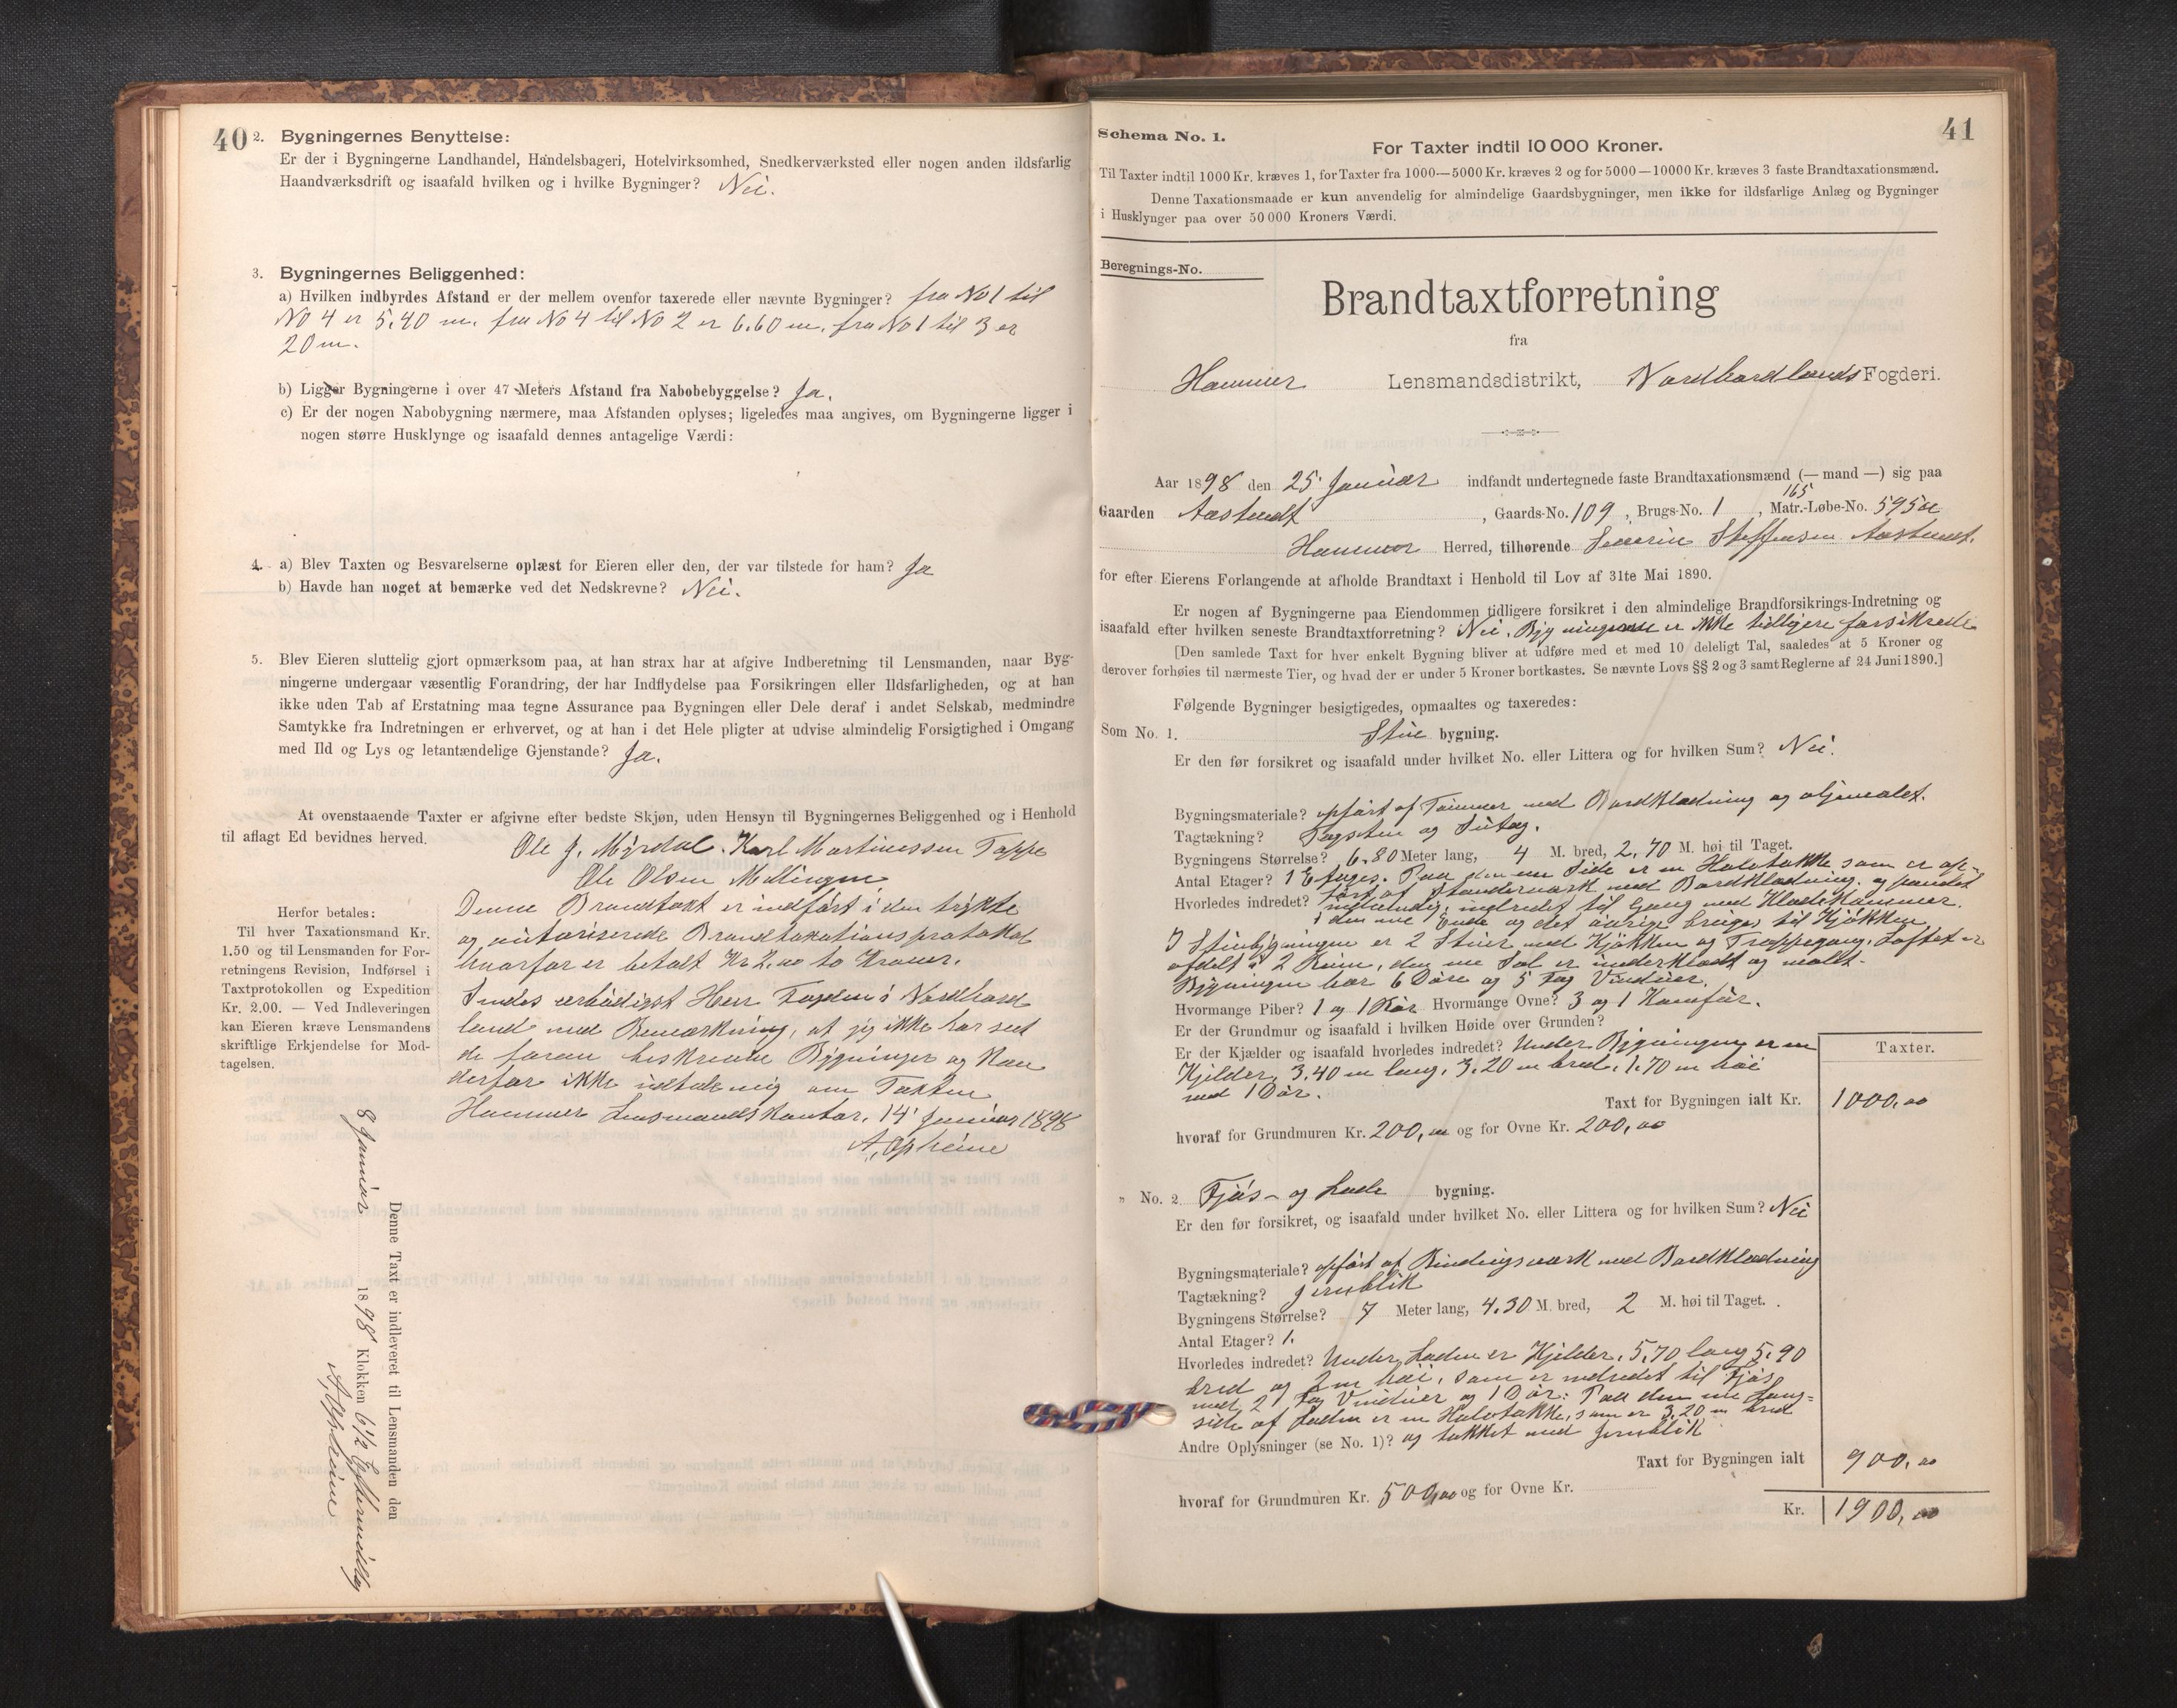 40
2. Bygningernes Benyttelse:
Er der i Bygningerne Landhandel, Handelsbageri, Hotelvirksomhed, Snedkerværksted eller nogen anden ildsfarlig
Haandværksdrift og isaafald hvilken og i hvilke Bygninger? Nei.
3. Bygningernes Beliggenhed:
a) Hvilken indbyrdes Afstand er der mellem ovenfor taxerede eller nævnte Bygninger? fra No 1 til
No 4 er 5,40 m. fra No 4 til No 2 er 6.60 m, fra No 1 til 3 er
20 m.
b) Ligger Bygningerne i over 47 Meters Afstand fra Nabobebyggelse? Ja.
c) Er der nogen Nabobygning nærmere, maa Afstanden oplyses; ligeledes maa angives, om Bygningerne ligger i
nogen større Husklynge og isaafald dennes antagelige Værdi:
4. a) Blev Taxten og Besvarelserne oplæst for Eieren eller den, der var tilstede for ham? Ja
b) Havde han noget at bemærke ved det Nedskrevne? Nei.
5. Blev Eieren sluttelig gjort opmærksom paa, at han strax har at afgive Indberetning til Lensmanden, naar Byg-
ningerne undergaar væsentlig Forandring, der har Indflydelse paa Forsikringen eller Ildsfarligheden, og at han
ikke uden Tab af Erstatning maa tegne Assurance paa Bygningen eller Dele deraf i andet Selskab, medmindre
Samtykke fra Indretningen er erhvervet, og at han i det Hele pligter at udvise almindelig Forsigtighed i Omgang
med Ild og Lys og letantændelige Gjenstande? Ja.
At ovenstaaende Taxter er afgivne efter bedste Skjøn, uden Hensyn til Bygningernes Beliggenhed og i Henhold
til aflagt Ed bevidnes herved.
Ole J. Myrdal. Karl Martinessen Toppe
Ole Olsen Mellingen
Herfor betales:
Til hver Taxationsmand Kr.
1.50 og til Lensmanden for For-
retningens Revision, Indførsel i
Taxtprotokollen og Expedition
Kr. 2.00. — Ved Indleveringen
kan Eieren kræve Lensmandens
skriftlige Erkjendelse for Mod-
tagelsen.
Denne Brandtaxt er indført i den trykte
og autoriserede Brandtaxationsprotokol
hvorfor er betalt Kr 2.00 to Kroner.
Sendes ærbødigst Herr Fogden i Nordhord
land med Bemærkning, at jeg ikke har seet
de foran beskrevne Bygninger og kan
derfor ikke udtale mig om Taxten
Hammer Lensmandskontor, 14 Januar 1898
Denne Taxt er indleveret til Lensmanden den
8 Januar 1898 Klokken 6 1/2 Eftermiddag
41
Schema No. 1.
For Taxter indtil 10 000 Kroner.
Til Taxter indtil 1000 Kr. kræves 1, for Taxter fra 1000—5000 Kr. kræves 2 og for 5000—10000 Kr. kræves 3 faste Brandtaxationsmænd.
Denne Taxationsmaade er kun anvendelig for almindelige Gaardsbygninger, men ikke for ildsfarlige Anlæg og Bygninger
i Husklynger paa over 50 000 Kroners Værdi.
Beregnings-No.
Brandtaxtforretning
fra
Hammer Lensmandsdistrikt, Nordhordlands Fogderi.
Aar 1898 den 25 Januar indfandt undertegnede faste Brandtaxationsmænd (— mand —) sig paa
165
Gaarden Aastvedt, Gaards-No. 109, Brugs-No. 1, Matr.-Løbe-No. 595a
Hammer Herred, tilhørende Severin Steffensen Aastvedt.
for efter Eierens Forlangende at afholde Brandtaxt i Henhold til Lov af 31te Mai 1890.
Er nogen af Bygningerne paa Eiendommen tidligere forsikret i den almindelige Brandforsikrings-Indretning og
isaafald efter hvilken seneste Brandtaxtforretning? Nei. Bygningerne er ikke tidligere forsikrede
[Den samlede Taxt for hver enkelt Bygning bliver at udføre med et med 10 deleligt Tal, saaledes at 5 Kroner og
derover forhøies til nærmeste Tier, og hvad der er under 5 Kroner bortkastes. Se nævnte Lovs §§ 2 og 3 samt Reglerne af 24 Juni 1890.]
Følgende Bygninger besigtigedes, opmaaltes og taxeredes:
Som No. 1. Stue bygning.
Er den før forsikret og isaafald under hvilket No. eller Littera og for hvilken Sum? Nei.
Bygningsmateriale? opført af Tømmer med Bordklædning og oljemalet.
Tagtækning? Tagsten og Sutag.
Bygningens Størrelse? 6.80 Meter lang, 4 M. bred, 2,70 M. høi til Taget.
Antal Etager? 1 Etages. Paa den ene Side er en Halvtække som er op-
Hvorledes indredet? ført af Standerværk med Bordklædning, og panelet
indvendig, indredet til Gang med Klædekammer
i den ene Ende og det øvrige bruges til Kjøkken
I Stuebygningen er 2 Stuer med Kjøkken og Trappegang. Loftet er
afdelt i 2 Rum, den ene Sal er underklædt og malet.
Bygningen har 6 Døre og 5 Fag Vinduer.
Hvormange Piber? 1 og 1 Rør Hvormange Ovne? 3 og 1 Komfür.
Er der Grundmur og isaafald i hvilken Høide over Grunden?
Er der Kjælder og isaafald hvorledes indredet? Under Bygningen er en
Kjelder, 3,40 m lang, 3,20 m bred, 1.70 m høi
med 1 Dør.
Taxter.
Taxt for Bygningen ialt Kr. 1000,00
hvoraf for Grundmuren Kr. 200,00 og for Ovne Kr. 200,00
" No. 2 Fjøs- og Lade bygning.
Er den før forsikret, og isaafald under hvilket No. eller Littera og for hvilken Sum? Nei
Bygningsmateriale? opført af Bindingsværk med Bordklædning
Tagtækning? Jernblik
Bygningens Størrelse? 7 Meter lang, 4.30 M. bred, 2 M. høi til Taget.
Antal Etager? 1.
Hvorledes indredet? Under Laden er Kjelder, 5,70 lang 5,90
bred og 2 m høi, som er indredet til Fjøs
med 2 Fag Vinduer og 1 Dør. Paa den ene Lang-
side af Laden er en Halvtække, som er 3,20 m bred
Andre Oplysninger (se No. 1)? og tækket med Jernblik
Taxt for Bygningen ialt 900,00
hvoraf for Grundmuren Kr. 500,00 og for Ovne Kr.
Kr. 1900,00